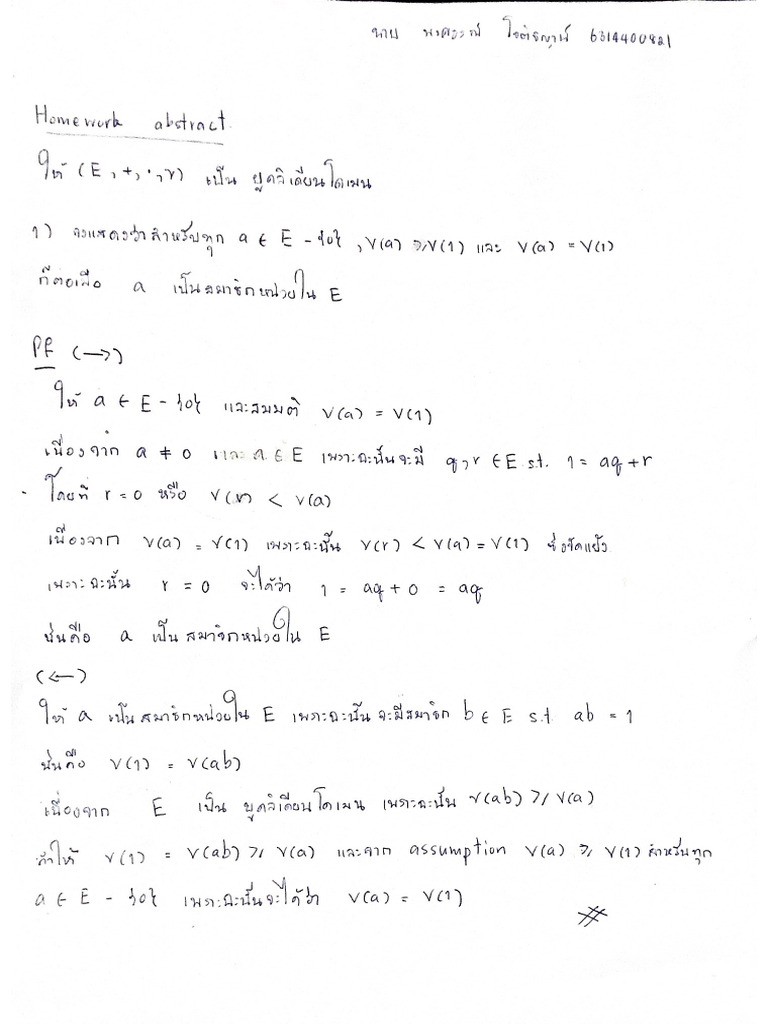 นาย 6314400821
Homework abstract.
ให้ (E, +, ·, v) เป็น ยูคลิเดียนโดเมน
1) จงแสดงว่าสำหรับทุก a ∈ E - {0}, v(a) ≥ v(1) และ v(a) = v(1)
ก็ต่อเมื่อ a เป็นสมาชิกหน่วยใน E
Pf (→)
ให้ a ∈ E - {0} และสมมติ v(a) = v(1)
เนื่องจาก a ≠ 0 และ a ∈ E เพราะฉะนั้นจะมี q, r ∈ E s.t. 1 = aq + r
โดยที่ r = 0 หรือ v(r) < v(a)
เนื่องจาก v(a) = v(1) เพราะฉะนั้น v(r) < v(a) = v(1) ซึ่งขัดแย้ง
เพราะฉะนั้น r = 0 จะได้ว่า 1 = aq + 0 = aq
นั่นคือ a เป็นสมาชิกหน่วยใน E
(←)
ให้ a เป็นสมาชิกหน่วยใน E เพราะฉะนั้นจะมีสมาชิก b ∈ E s.t. ab = 1
นั่นคือ v(1) = v(ab)
เนื่องจาก E เป็น ยูคลิเดียนโดเมน เพราะฉะนั้น v(ab) ≥ v(a)
ทำให้ v(1) = v(ab) ≥ v(a) และจาก assumption v(a) ≥ v(1) สำหรับทุก
a ∈ E - {0} เพราะฉะนั้นจะได้ว่า v(a) = v(1)